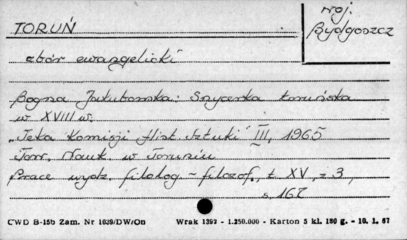 TORUŃ
woj.
Bydgoszcz
zbór ewangelicki
Bogna Jakubowska: Snycerka toruńska
w XVIII w.
„Teka Komisji Hist. Sztuki" III, 1965
Tow. Nauk. w Toruniu
Prace wydz. filolog-filozof., t. XV, z 3,
s. 167
CWD B-15b Zam. Nr 1039/DW/On Wrak 1393 - 1.250.000 - Karton 5 kl. 180 g. - 10. 1. 67